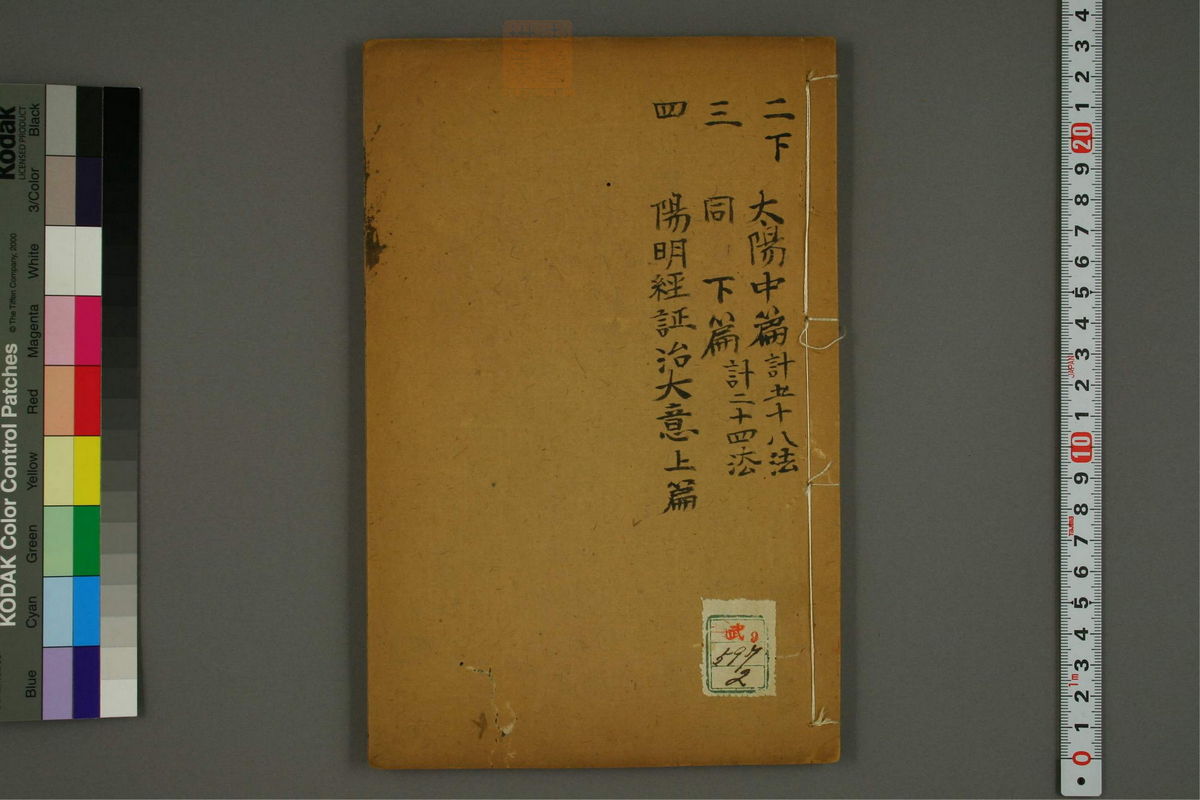 二下 太陽中篇計五十八法
三 同 下篇計二十四法
四 陽明經証治大意上篇
武 9
597
2
Kodak
LICENSED PRODUCT
KODAK Color Control Patches
© The Tiffen Company, 2000
Black
3/Color
White
Magenta
Red
Yellow
Green
Cyan
Blue
4
3
2
1
20
9
8
7
6
5
4
3
JAPAN
2
1
10
9
8
7
6
5
4
3
1m
2
1
0